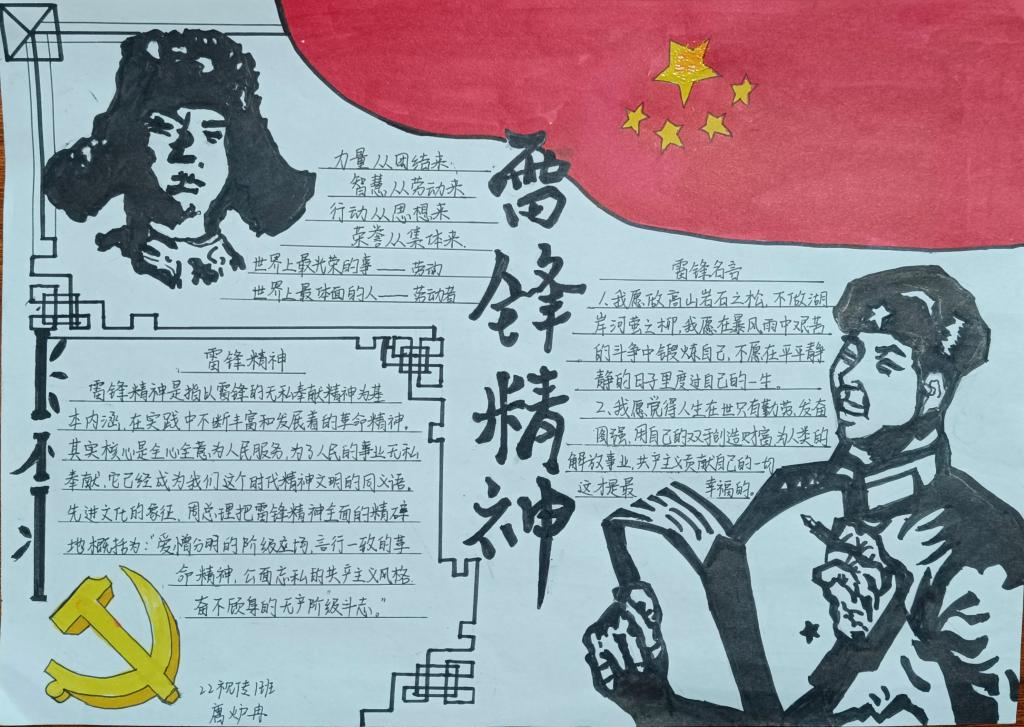 力量从团结来
智慧从劳动来
行动从思想来
荣誉从集体来
世界上最光荣的事——劳动
世界上最体面的人——劳动者
雷锋精神
雷锋精神
雷锋精神是指以雷锋的无私奉献精神为基
本内涵,在实践中不断丰富和发展着的革命精神,
其实核心是全心全意为人民服务,为了人民的事业无私
奉献,它已经成为我们这个时代精神文明的同义语,
先进文化的象征,周总理把雷锋精神全面的精
地概括为:“爱憎分明的阶级立场,言行一致的革
命精神,公而忘私的共产主义风格
奋不顾身的无产阶级斗志。”
22视传1班
雷锋名言
1.我愿做高山岩石之松,不做湖
岸河之柳,我愿在暴风雨中艰苦
的斗争中锻炼自己,不愿在平平静
静的日子里度过自己的一生。
2.我愿觉得人生在世只有勤劳,发奋
图强,用自己的双手创造财富,为人类的
解放事业,共产主义贡献自己的一切
这才是最 幸福的。